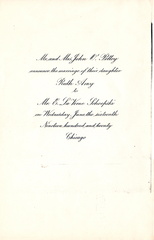 Mr. and Mrs. John C. Polley
announce the marriage of their daughter
Ruth Amy
to
Mr. E. La Verne
on Wednesday, June the sixteenth
Nineteen hundred and twenty
Chicago